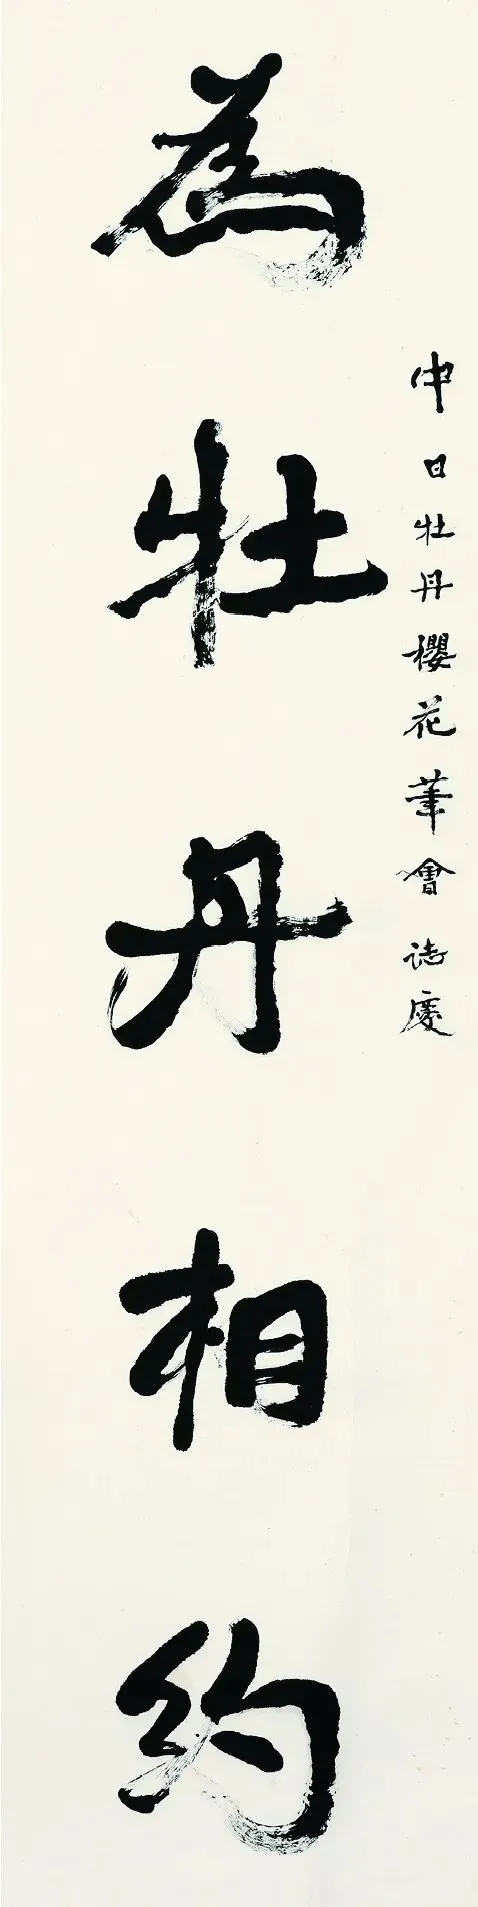 中日牡丹櫻花筆會誌慶
為牡丹相約